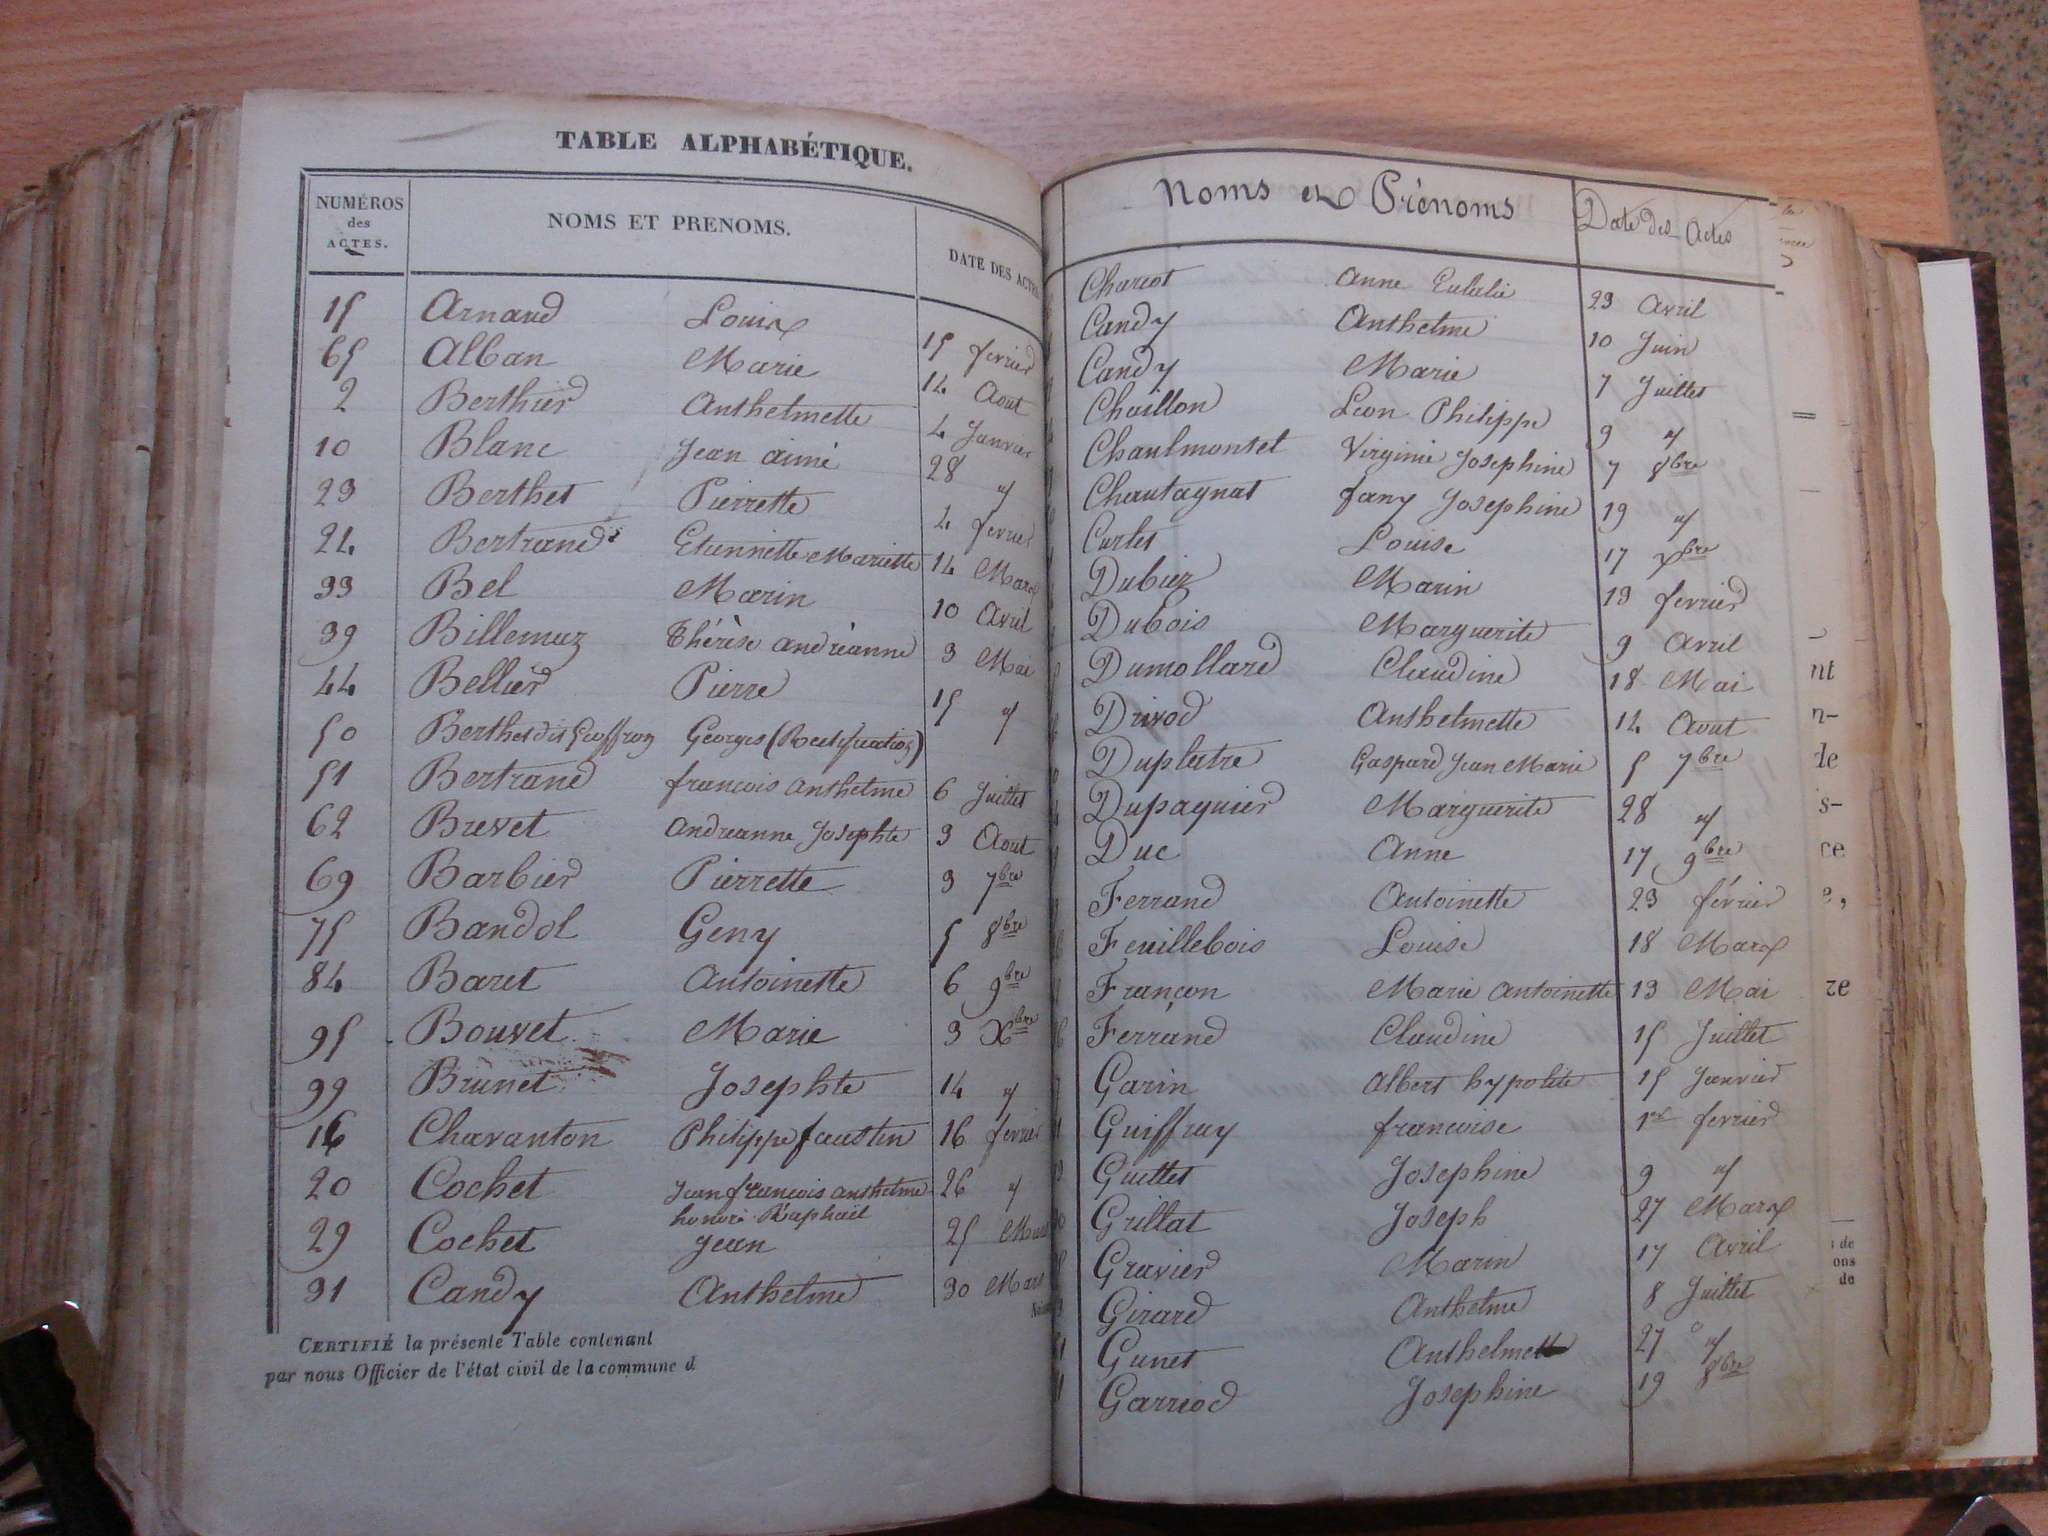 TABLE ALPHABÉTIQUE.
NUMÉROS des ACTES. NOMS ET PRENOMS. DATE DES ACTES
15 Arnaud Louise 15 fevrier
65 Alban Marie 14 Aout
2 Berthier Anthelmette 4 Janvier
10 Blanc Jean aimé 28 "
23 Berthet Pierrette 4 fevrier
24 Bertrand Etiennette Mariette 14 Mars
33 Bel Marin 10 Avril
39 Billemaz Thérèse andréanne 3 Mai
44 Bellier Pierre 15 "
50 Berthet dit Geoffroy Georges (Rectification)
51 Bertrand francois anthelme 6 Juillet
62 Brevet andreanne Josephte 3 Aout
69 Barbier Pierrette 3 7bre
75 Bandol Geny 5 8bre
84 Baret Antoinette 6 9bre
95 Bouvet Marie 3 Xbre
99 Brunet Josephte 14 "
16 Chavanton Philippe faustin 16 fevrier
20 Cochet Jean francois anthelme 26 "
honoré Raphael
29 Cochet Jean 25 Mars
31 Candy Anthelme 30 Mars
CERTIFIÉ la présente Table contenant
par nous Officier de l'état civil de la commune d
Noms et Prénoms Date des Actes
Charcot Anne Eulalie 23 Avril
Candy Anthelme 10 Juin
Candy Marie 7 Juillet
Chaillon Leon Philippe 9 "
Chaulmontet Virginie Josephine 7 8bre
Chautagnat fany Josephine 19 "
Curlet Louise 17 Xbre
Dubiez Marin 13 fevrier
Dubois Marguerite 9 Avril
Dumollard Claudine 18 Mai
Drivod Anthelmette 12 Aout
Duplatre Gaspard Jean Marie 5 7bre
Dupaquier Marguerite 28 "
Duc Anne 17 9bre
Ferrand Antoinette 23 février
Feuillebois Louise 18 Mars
Françon Marie Antoinette 13 Mai
Ferrand Claudine 15 Juillet
Garin Albert hypolite 15 Janvier
Guiffray francoise 1er fevrier
Guillet Josephine 9 "
Grillat Joseph 27 Mars
Gravier Marin 17 Avril
Girard Anthelme 8 Juillet
Gunet Anthelmette 27 "
Garriod Josephine 19 8bre
nt
n-
de
s-
ce
e,
ze
de
ons
de